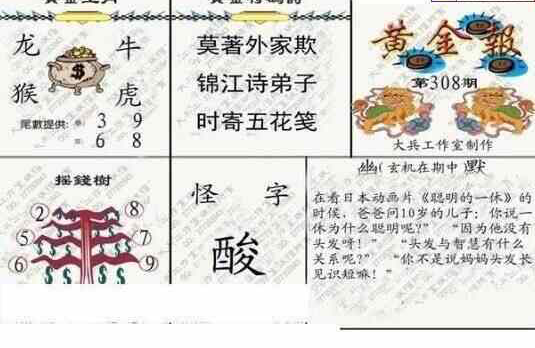 龙 牛
猴 虎
尾數提供: 3 9
6 8
莫著外家欺
锦江诗弟子
时寄五花笺
黄金報
第308期
大兵工作室制作
摇錢樹
2 8
5 7
6 9
怪 字
酸
幽(玄机在期中 默
在看日本动画片《聪明的一休》的
时候，爸爸问10岁的儿子：你说一
休为什么聪明呢？”“因为他没有
头发呀！”“头发与智慧有什么
关系呢？”“你不是说妈妈头发长
见识短嘛！”